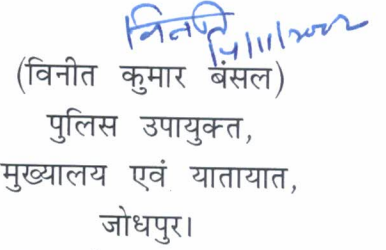 विनीत
14/11/2022
(विनीत कुमार बंसल)
पुलिस उपायुक्त,
मुख्यालय एवं यातायात,
जोधपुर।